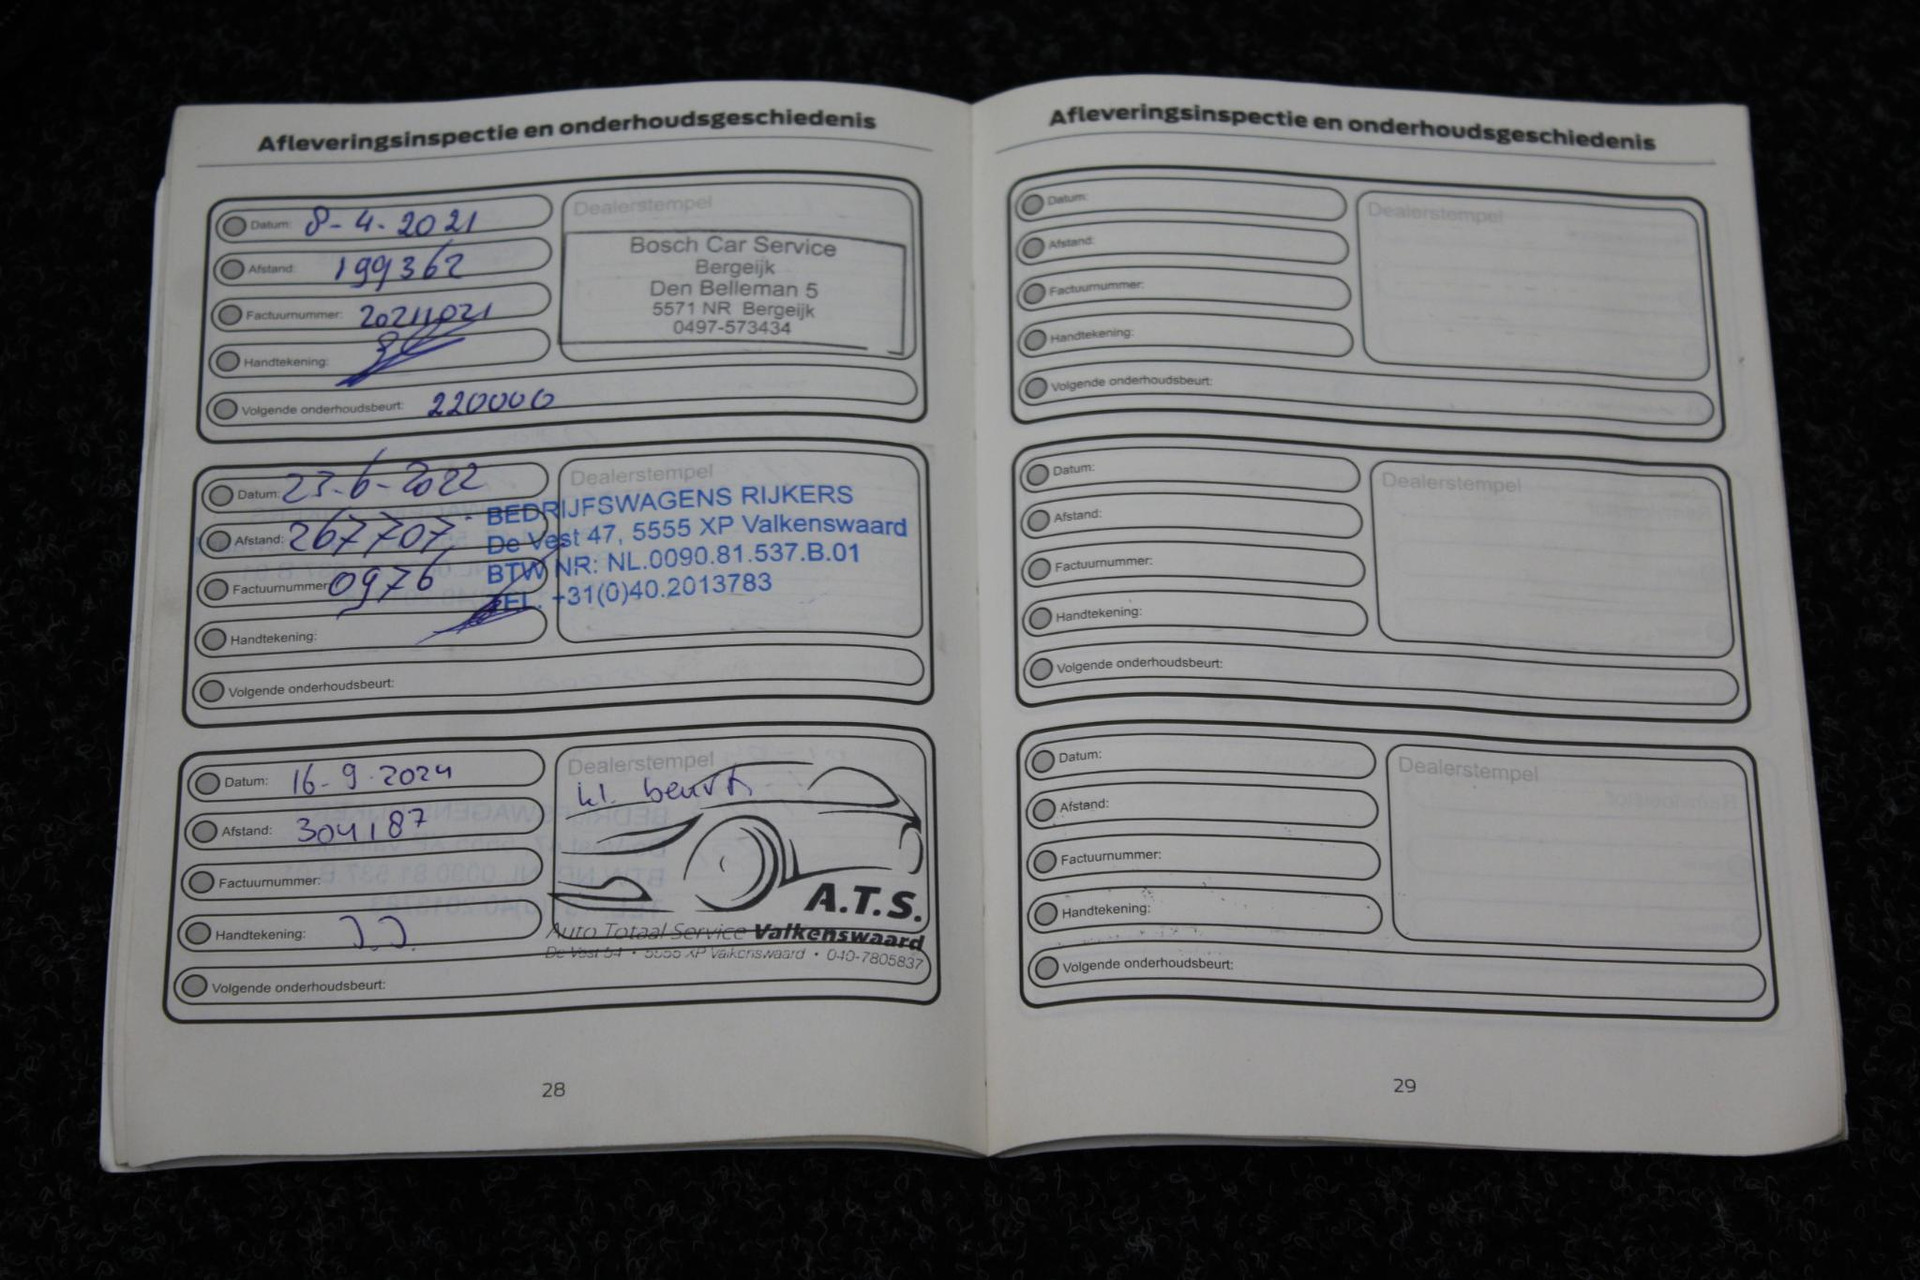 Afleveringsinspectie en onderhoudsgeschiedenis
Datum: 8-4-2021
Afstand: 199362
Factuurnummer: 20211021
Handtekening:
Volgende onderhoudsbeurt: 220000
Dealerstempel
Bosch Car Service
Bergeijk
Den Belleman 5
5571 NR Bergeijk
0497-573434
Datum: 23-6-2022
Afstand: 267707
Factuurnummer: 0976
Handtekening:
Volgende onderhoudsbeurt:
Dealerstempel
BEDRIJFSWAGENS RIJKERS
De Vest 47, 5555 XP Valkenswaard
BTW NR: NL.0090.81.537.B.01
TEL. +31(0)40.2013783
Datum: 16-9-2024
Afstand: 304187
Factuurnummer:
Handtekening: J.J.
Volgende onderhoudsbeurt:
Dealerstempel
kl. beurt
A.T.S.
Auto Totaal Service Valkenswaard
De Vest 54 • 5555 XP Valkenswaard • 040-7805837
28
Afleveringsinspectie en onderhoudsgeschiedenis
Datum:
Afstand:
Factuurnummer:
Handtekening:
Volgende onderhoudsbeurt:
Dealerstempel
Datum:
Afstand:
Factuurnummer:
Handtekening:
Volgende onderhoudsbeurt:
Dealerstempel
Datum:
Afstand:
Factuurnummer:
Handtekening:
Volgende onderhoudsbeurt:
Dealerstempel
29